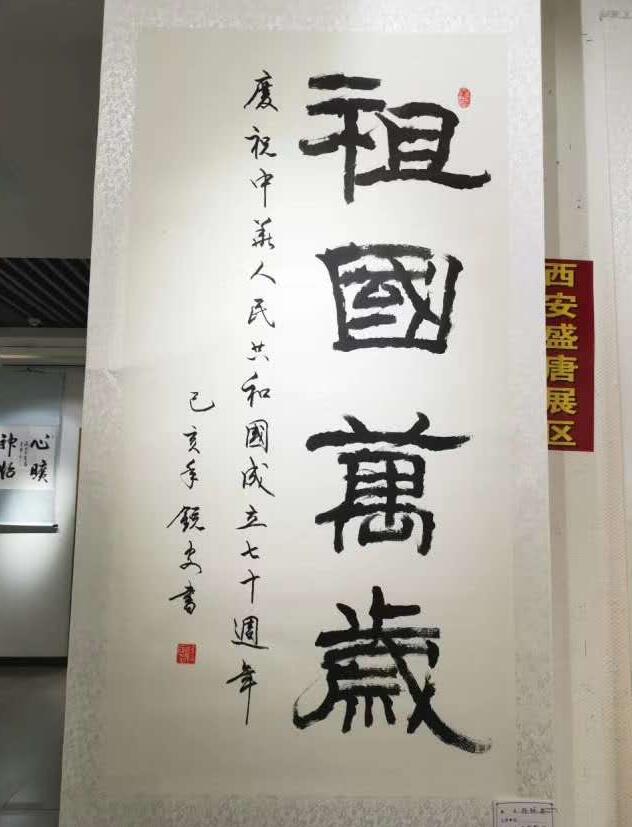 祖國萬歲
慶祝中華人民共和國成立七十週年
己亥年鏡安書
西安盛唐展区
心曠
神怡